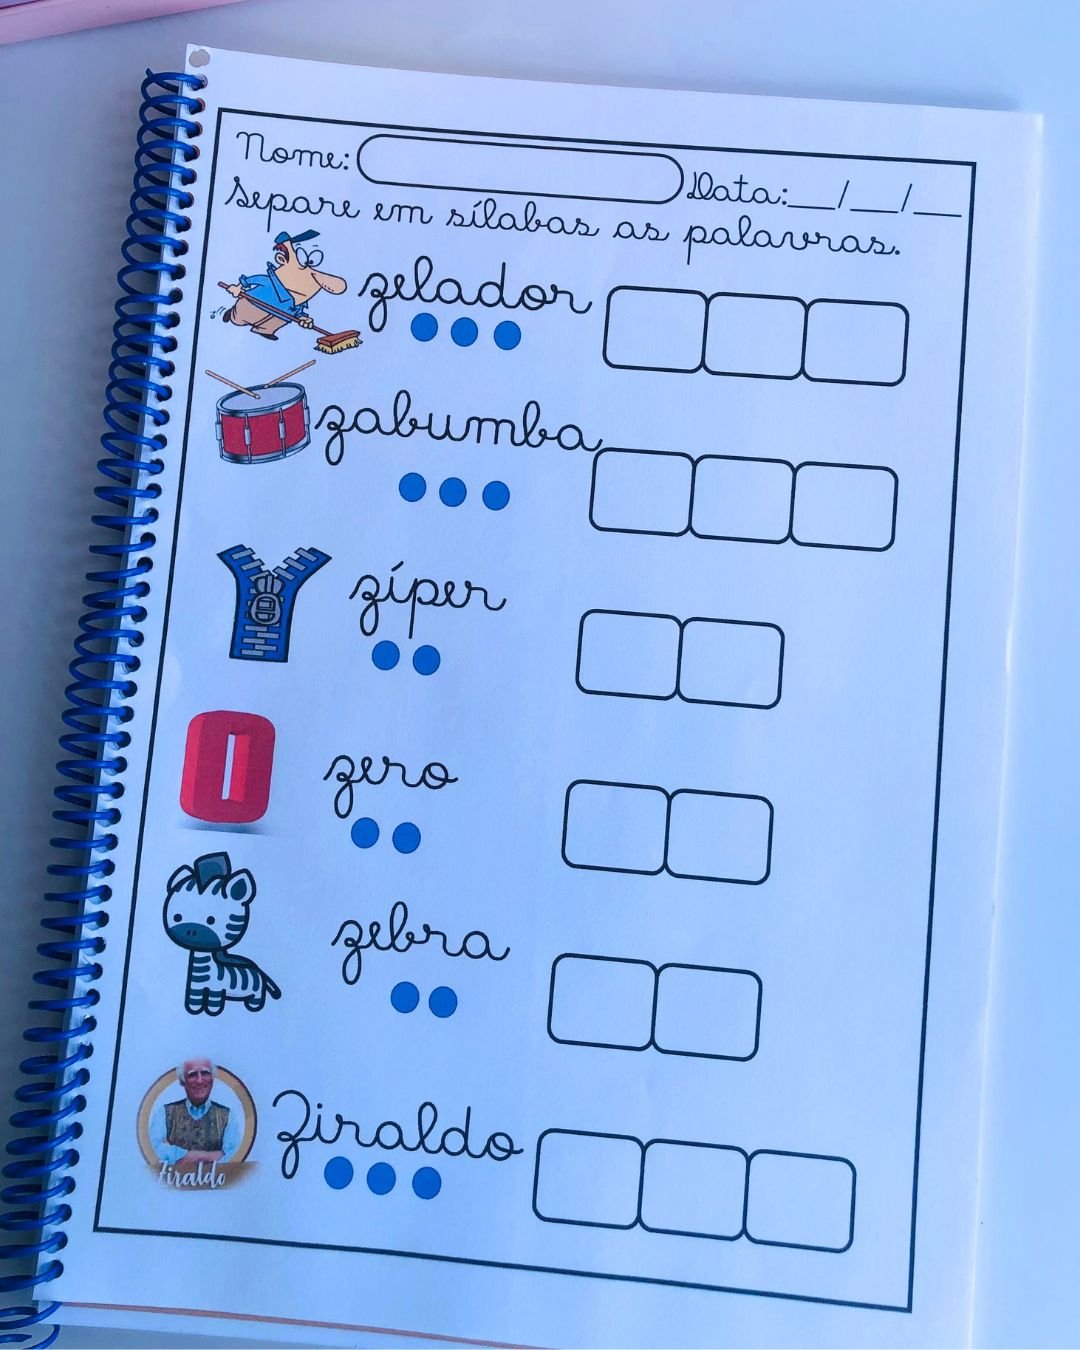 Nome: Data:__/__/__
Separe em sílabas as palavras.
zelador
zabumba
zíper
0
zero
zebra
Ziraldo
Ziraldo